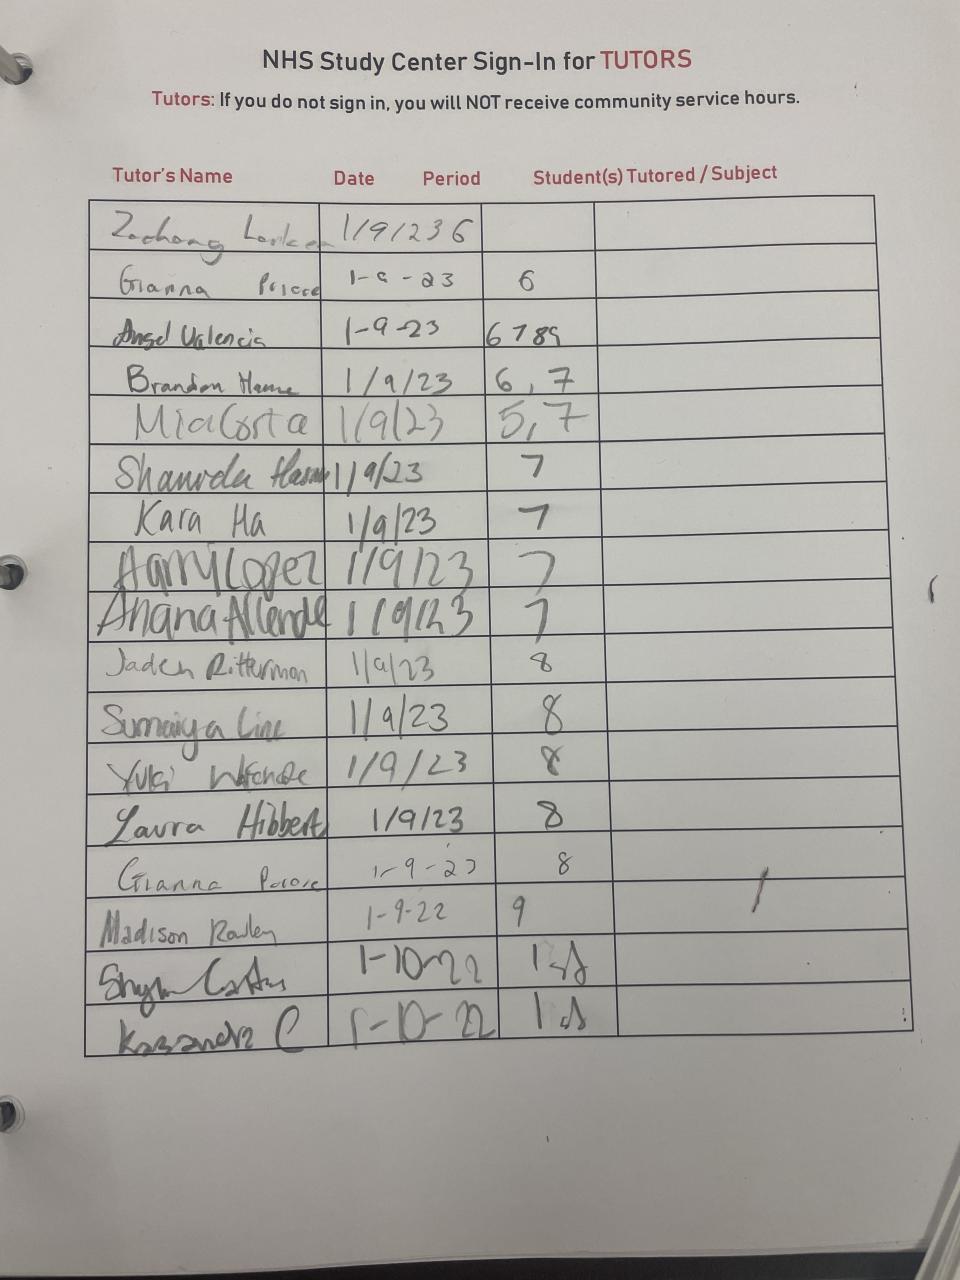 NHS Study Center Sign-In for TUTORS
Tutors: If you do not sign in, you will NOT receive community service hours.
Tutor's Name Date Period Student(s) Tutored / Subject
1/9/23 6
Gianna 1-9-23 6
Angel Valencia 1-9-23 6789
Brandon 1/9/23 6,7
Mia Costa 1/9/23 5,7
1/9/23 7
Kara Ha 1/9/23 7
Harry Lopez 1/9/23 7
Ariana Allende 1/9/23 7
Jaden Ritterman 1/9/23 8
Sumaiya 1/9/23 8
Yuki 1/9/23 8
Laura Hibbert 1/9/23 8
Gianna 1-9-23 8
Madison 1-9-22 9
1-10-22 1st
Kasandra C 1-10-22 1st